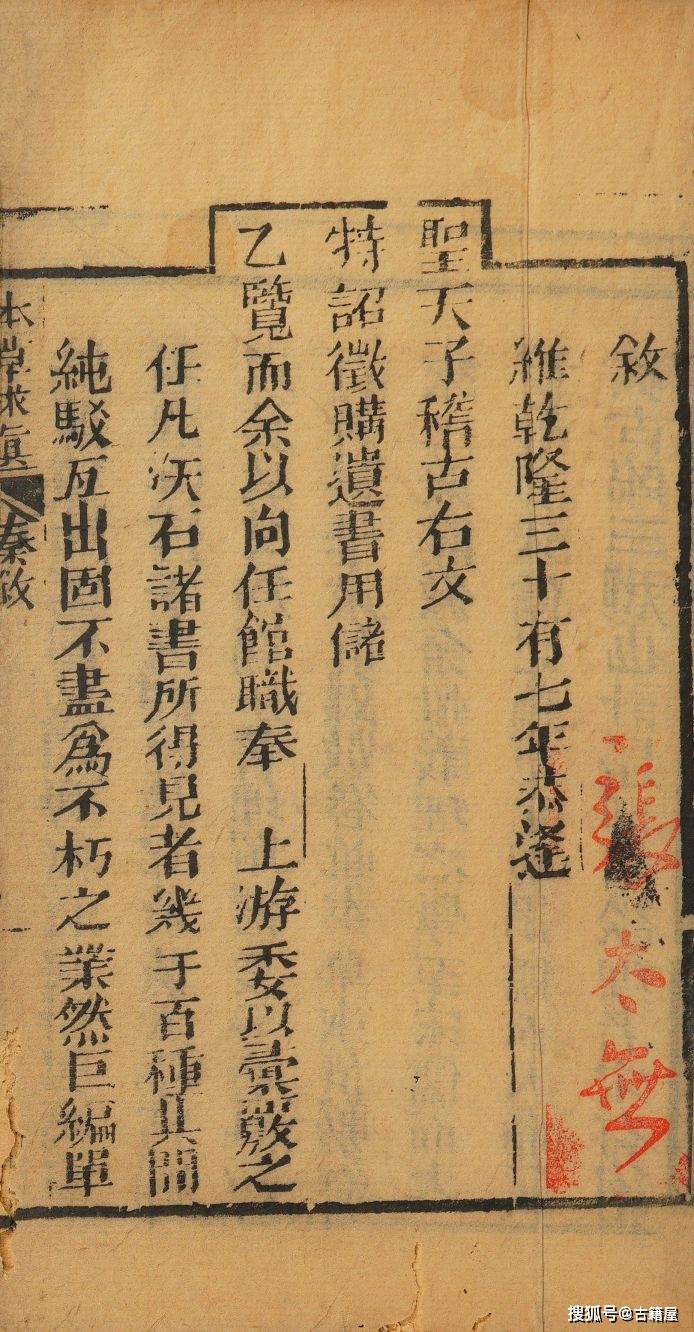 敘
維乾隆三十有七年恭逢
聖天子稽古右文
特詔徵購遺書用儲
乙覽而余以向任館職奉 上游委以彙嚴之
任凡天石諸書所得見者幾于百種其間
純駁互出固不盡為不朽之業然巨編單
本草求真 秦敘
張 無
搜狐号@古籍屋